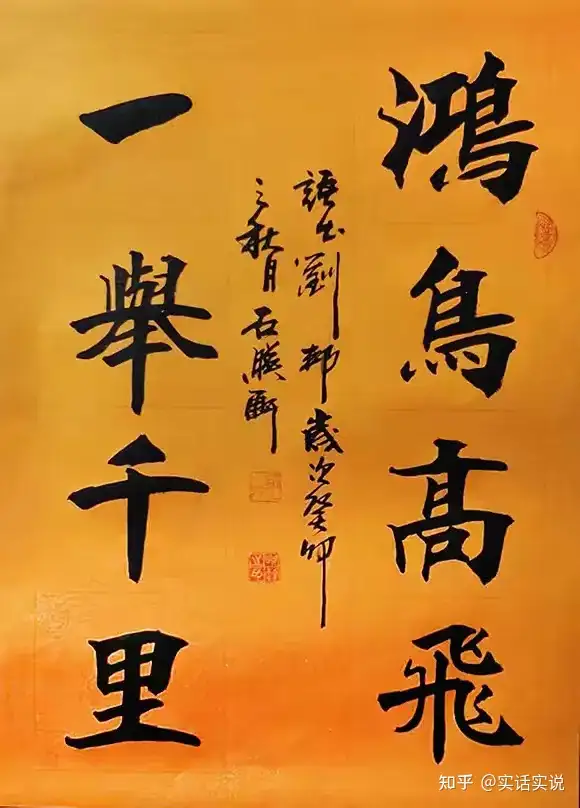 鴻鳥高飛
一舉千里
語出劉邦歲次癸卯
之秋月石騰
知乎 @实话实说